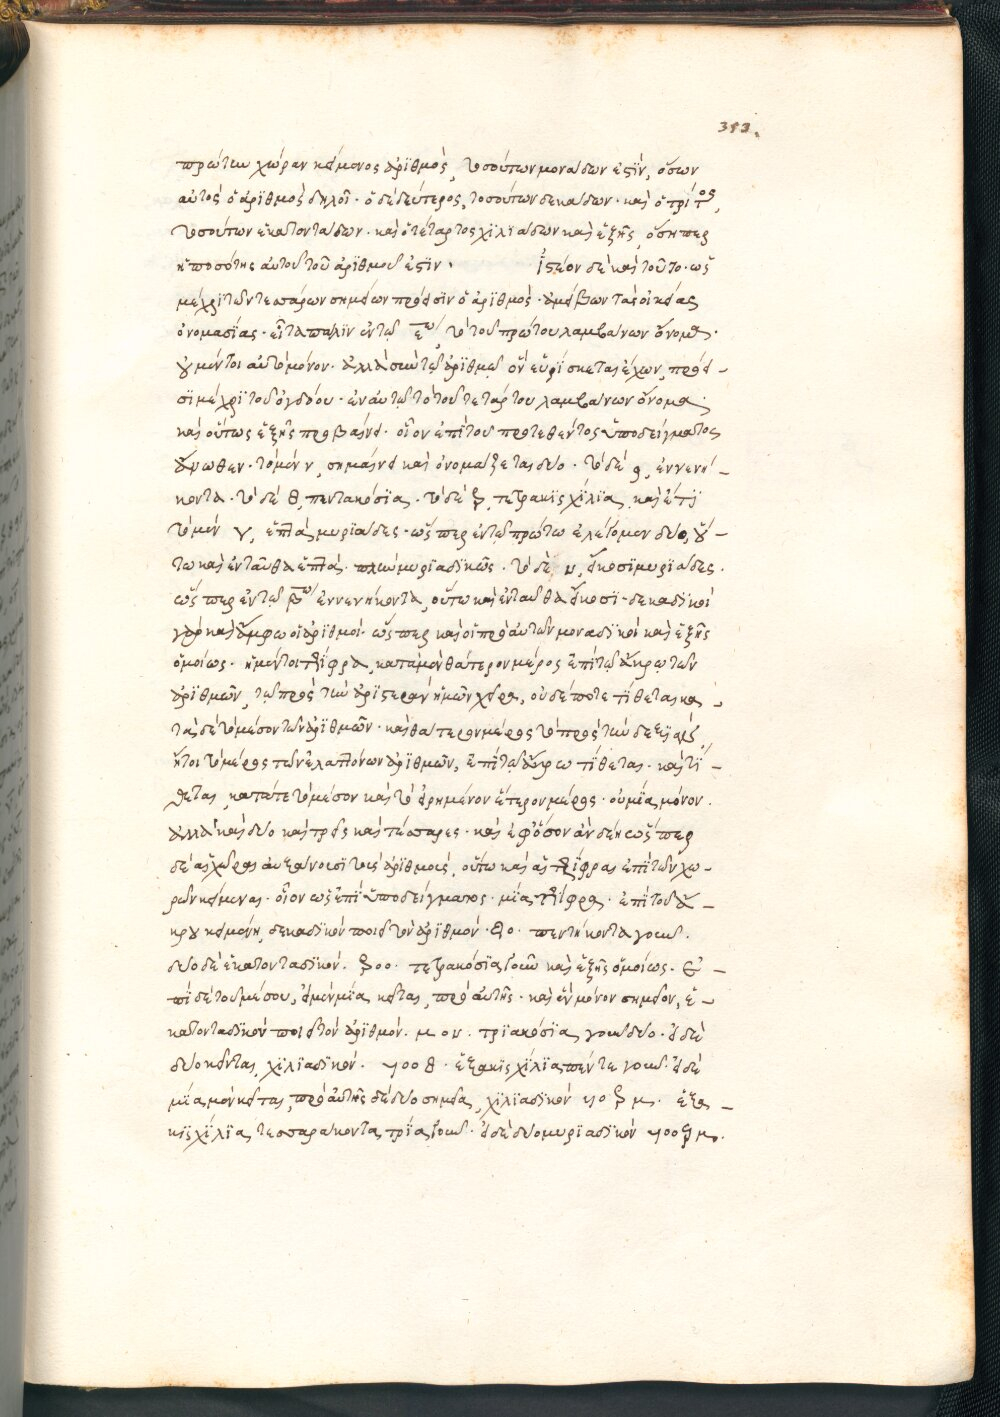 353.
πρώτην χώραν κείμενος ἀριθμὸς, τοσούτων μονάδων ἐστὶν, ὅσων
αὐτὸς ὁ ἀριθμὸς δηλοῖ· ὁ δὲ δεύτερος, τοσούτων δεκάδων· καὶ ὁ τρίτος,
τοσούτων ἑκατοντάδων· καὶ ὁ τέταρτος χιλιάδων καὶ ἑξῆς, ὅση περ
ἡ ποσότης αὐτοῦ τοῦ ἀριθμοῦ ἐστιν· ἰστέον δὲ καὶ τοῦτο· ὡς
μέχρι τῶν τεσσάρων σημείων πρόεισιν ὁ ἀριθμὸς· ἀμείβων τὰς οἰκείας
ὀνομασίας· εἶτα πάλιν ἐν τῷ ε͞ῳ τὸ τοῦ πρώτου λαμβάνων ὄνομα·
οὐ μέντοι αὐτὸ μόνον· ἀλλὰ σὺν τῷ ἀριθμῷ ὃν εὑρίσκεται ἔχων, πρόει-
σι μέχρι τοῦ ὀγδόου· ἐν αὐτῷ τὸ τοῦ τετάρτου λαμβάνων ὄνομα·
καὶ οὕτως ἑξῆς προβαίνει· οἷον ἐπὶ τοῦ προτεθέντος ὑποδείγματος
ἄνωθεν· τὸ μὲν, σημαίνει καὶ ὀνομάζεται δύο· τὸ δὲ, ἐννενή-
κοντα· τὸ δὲ, πεντακόσια· τὸ δὲ, τετρακισχίλια, καὶ
τὸ μὲν, ἑπτὰ μυριάδες· ὥσπερ ἐν τῷ πρώτῳ ἐλέγομεν δύο, οὕ-
τω καὶ ἐνταῦθα ἑπτά· πλὴν μυριαδικῶς· τὸ δὲ, εἴκοσι μυριάδες.
ὥσπερ ἐν τῷ β͞ῳ ἐννενήκοντα, οὕτω καὶ ἐνταῦθα εἴκοσι· δεκαδικοὶ
γὰρ καὶ ἄμφω οἱ ἀριθμοί· ὥσπερ καὶ οἱ πρὸ αὐτῶν μοναδικοὶ καὶ ἑξῆς
ὁμοίως· ἡ μέντοι τζίφρα, κατὰ μὲν θάτερον μέρος ἐπὶ τῷ ἄκρῳ τῶν
ἀριθμῶν, τῷ πρὸς τὴν ἀριστερὰν ἡμῶν χεῖρα, οὐδέποτε τίθεται· κα-
τὰ δὲ τὸ μέσον τῶν ἀριθμῶν· καὶ θάτερον μέρος τὸ πρὸς τὴν δεξιὰν,
ἤτοι τὸ μέρος τῶν ἐλαττόνων ἀριθμῶν, ἐπὶ τῷ ἄκρῳ τίθεται· καὶ τί-
θεται κατά τε τὸ μέσον καὶ τὸ εἰρημένον ἕτερον μέρος· οὐ μία μόνον.
ἀλλὰ καὶ δύο καὶ τρεῖς καὶ τέσσαρες· καὶ ἐφ' ὅσον ἂν δέῃ· ὥσπερ
δὲ αἱ χῶραι αὐξάνουσι τοὺς ἀριθμοὺς, οὕτω καὶ αἱ τζίφραι ἐπὶ τῶν χω-
ρῶν κείμεναι· οἷον ὡς ἐπὶ ὑποδείγματος· μία τζίφρα· ἐπὶ τοῦ ἄ-
κρου κειμένη, δεκαδικὸν ποιεῖ τὸν ἀριθμόν· πεντήκοντα γοῦν.
δύο δὲ ἑκατονταδικόν. τετρακόσια γοῦν καὶ ἑξῆς ὁμοίως. Ἐ-
πὶ δὲ τοῦ μέσου, εἰ μὲν μία κεῖται, πρὸ αὐτῆς· καὶ ἓν μόνον σημεῖον, ἑ-
κατονταδικὸν ποιεῖ τὸν ἀριθμόν. τριακόσια γοῦν δύο· εἰ δὲ
δύο κεῖνται, χιλιαδικόν. ἑξακισχίλια πέντε γοῦν· εἰ δὲ
μία μὲν κεῖται, πρὸ αὐτῆς δὲ δύο σημεῖα, χιλιαδικὸν ἑξα-
κισχίλια τεσσαράκοντα τρία γοῦν· εἰ δὲ δύο μυριαδικὸν